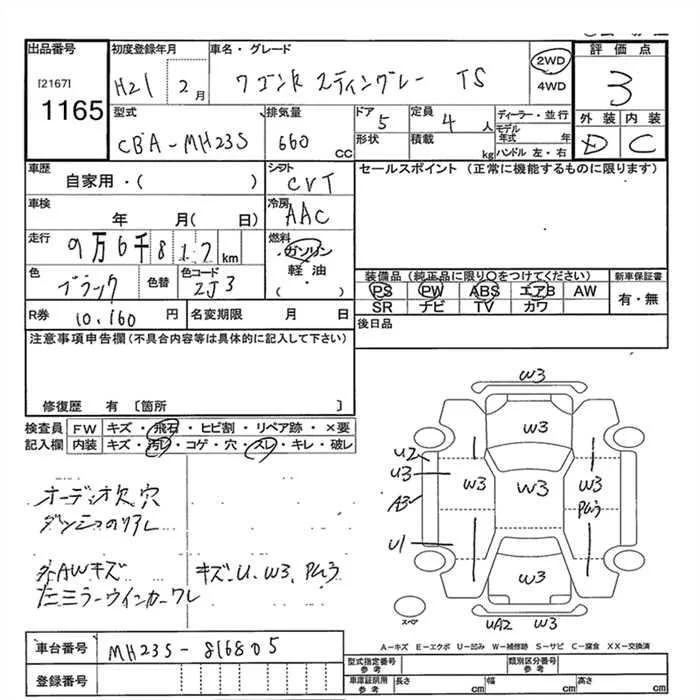 出品番号
[2167]
1165
初度登録年月
H21 2月
車名・グレード
ワゴンR スティングレー TS
2WD
4WD
評価点
3
外装 内装
D C
型式
CBA-MH23S
排気量
660 CC
ドア
5
形状
定員
4人
積載
kg
ディーラー・並行
モデル年式 年
ハンドル 左・右
車歴
自家用・( )
シフト
CVT
セールスポイント (正常に機能するものに限ります)
車検
年 月( 日)
冷房
AAC
走行
9万6千812km
燃料
ガソリン
軽油
( )
色
ブラック
色替
色コード
ZJ3
装備品(純正品に限り○をつけてください)
PS PW ABS エアB AW
SR ナビ TV カワ
新車保証書
有・無
R券 10,160 円
名変期限 月 日
後日品
注意事項申告欄(不具合内容等は具体的に記入して下さい)
修復歴 有 [箇所 ]
検査員記入欄
FW キズ・飛石・ヒビ割・リペア跡・×要
内装 キズ・汚レ・コゲ・穴・スレ・キレ・破レ
オーディオ欠 穴
外AWキズ
左ミラーウインカーワレ
キズ、U、W3、
W3
W3
U2
U3
W3
W3
W3
A3
U1
W3
UA2 W3
スペア
A-キズ E-エクボ U-凹み W-補修跡 S-サビ C-腐食 XX-交換済
車台番号
MH23S-816805
登録番号
型式指定番号 参考
類別区分番号 参考
車庫証明用 参考
長さ cm 幅 cm 高さ cm